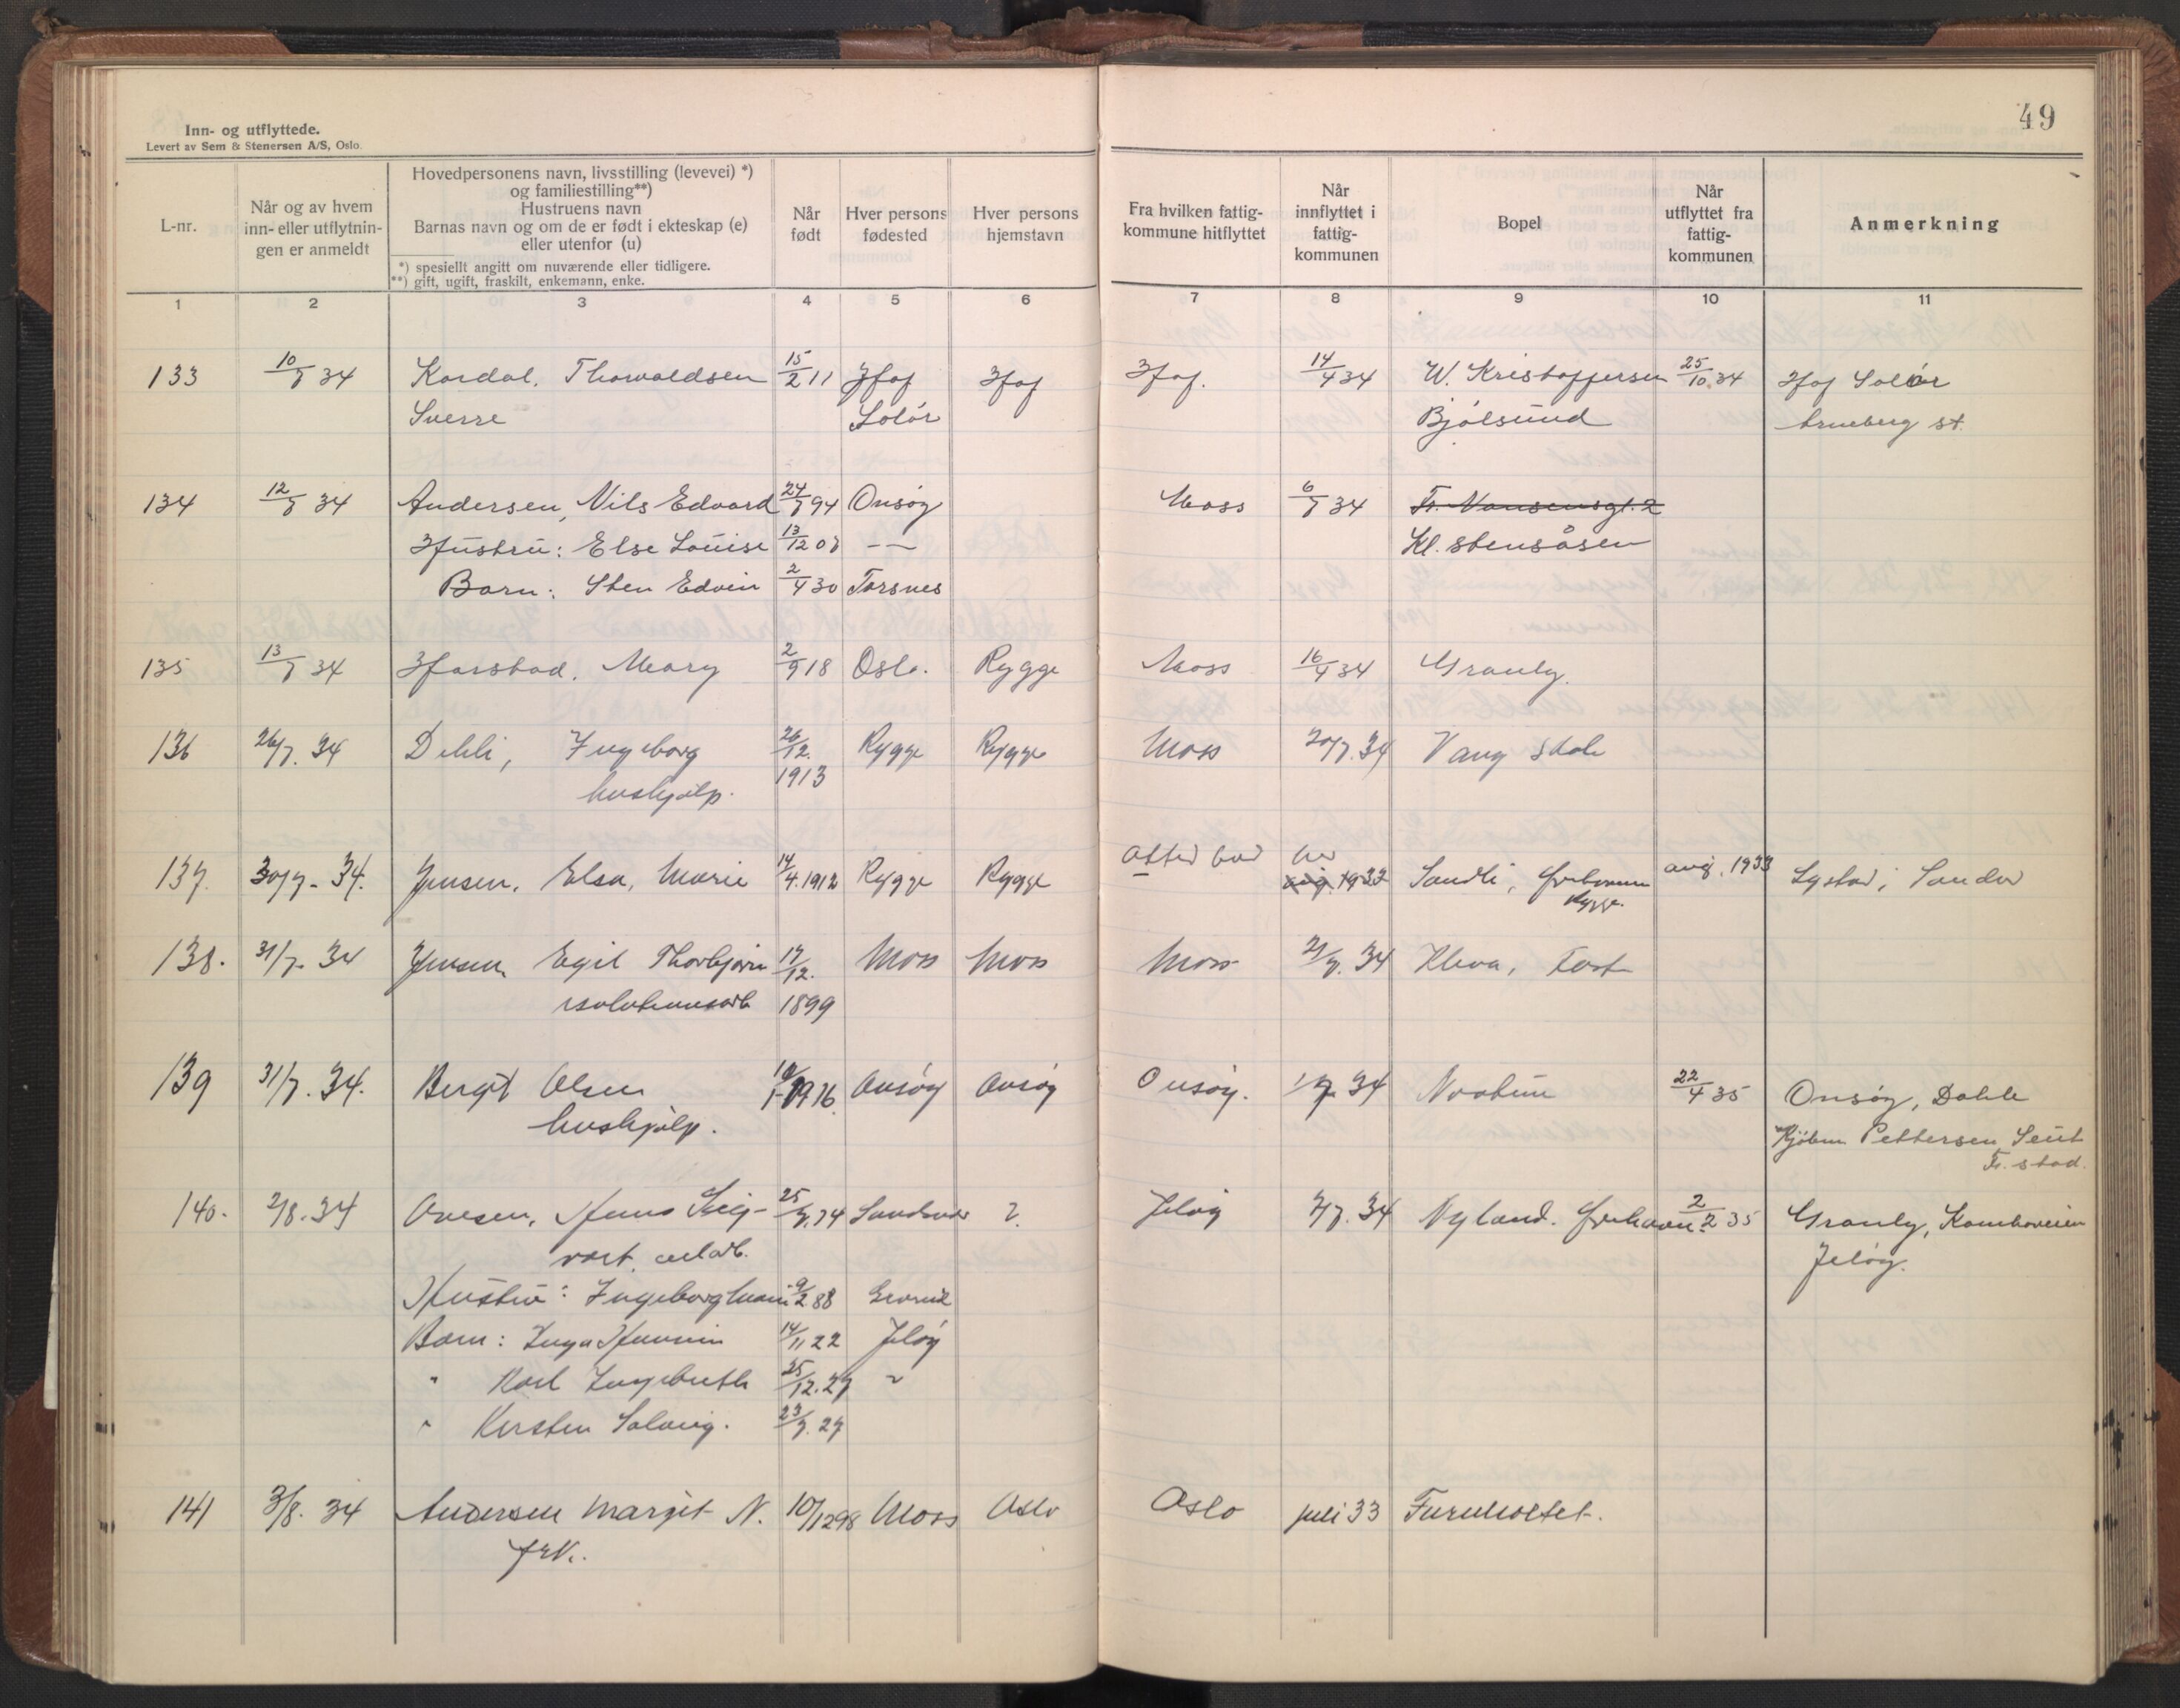 49
Inn- og utflyttede.
Levert av Sem & Stenersen A/S, Oslo.
L-nr.
Når og av hvem inn- eller utflytnin- gen er anmeldt
Hovedpersonens navn, livsstilling (levevei) *)
og familiestilling**)
Hustruens navn
Barnas navn og om de er født i ekteskap (e)
eller utenfor (u)
*) spesiellt angitt om nuværende eller tidligere.
**) gift, ugift, fraskilt, enkemann, enke.
Når født
Hver persons fødested
Hver persons hjemstavn
Fra hvilken fattig- kommune hitflyttet
Når innflyttet i fattig- kommunen
Bopel
Når utflyttet fra fattig- kommunen
Anmerkning
1 2 3 4 5 6 7 8 9 10 11
133 10/7 34 Kordal, Thorvaldsen 15/2 11 Hof Hof Hof. 14/4 34 W. Kristoffersen 25/10.34 Hof Solør
Sverre Solør Bjølsund Arneberg st.
134 12/7 34 Andersen, Nils Edvard 24/7 94 Onsøy Moss 6/7 34 Fr. Nansensgt. 2
Hustru: Else Louise 13/12 07 — Kl. Stensåsen
Barn: Sten Edvin 2/4 30 Torsnes
135 13/7 34 Harstad, Mary 2/9 18 Oslo. Rygge Moss 16/4 34 Granly.
136 26/7. 34 Dehli, Ingeborg 26/12. Rygge Rygge Moss 20/7. 34 Vang skole
hushjelp. 1913
137. 30/7- 34. Jensen, Elsa, Marie 14/4.1912 Rygge Rygge Alltid bod her
aug. 1933 Sandli, aug. 1933 Lystad, Sander
Rygge.
138. 31/7- 34 Jensen Egil Thorbjørn 17/12. Moss Moss Moss 34 Kleva,
1899
139 31/7. 34. Bergit Olsen 1916. Onsøy Onsøy Onsøy. 34 22/4 35 Onsøy, Dahle
hushjelp. Pettersen Seut
Fr.stad.
140. 2/8. 34 Ovesen, 25/7.74 ?. Jeløy 34 Nyland. 2/2 35 Granly,
Jeløy.
Hustru: Ingeborg 9/2 88
Barn: Inga 14/11 22 Jeløy
" Karl 25/12.27 "
" Kersten Solveig. 23/7. 27
141 3/8. 34 Andersen Margit N. 10/12 98 Moss Oslo Oslo juli 33 Furuholtet.
frk.